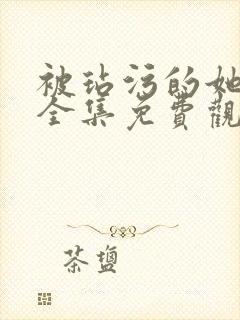 被玷污的她
全集免費觀
茶鹽